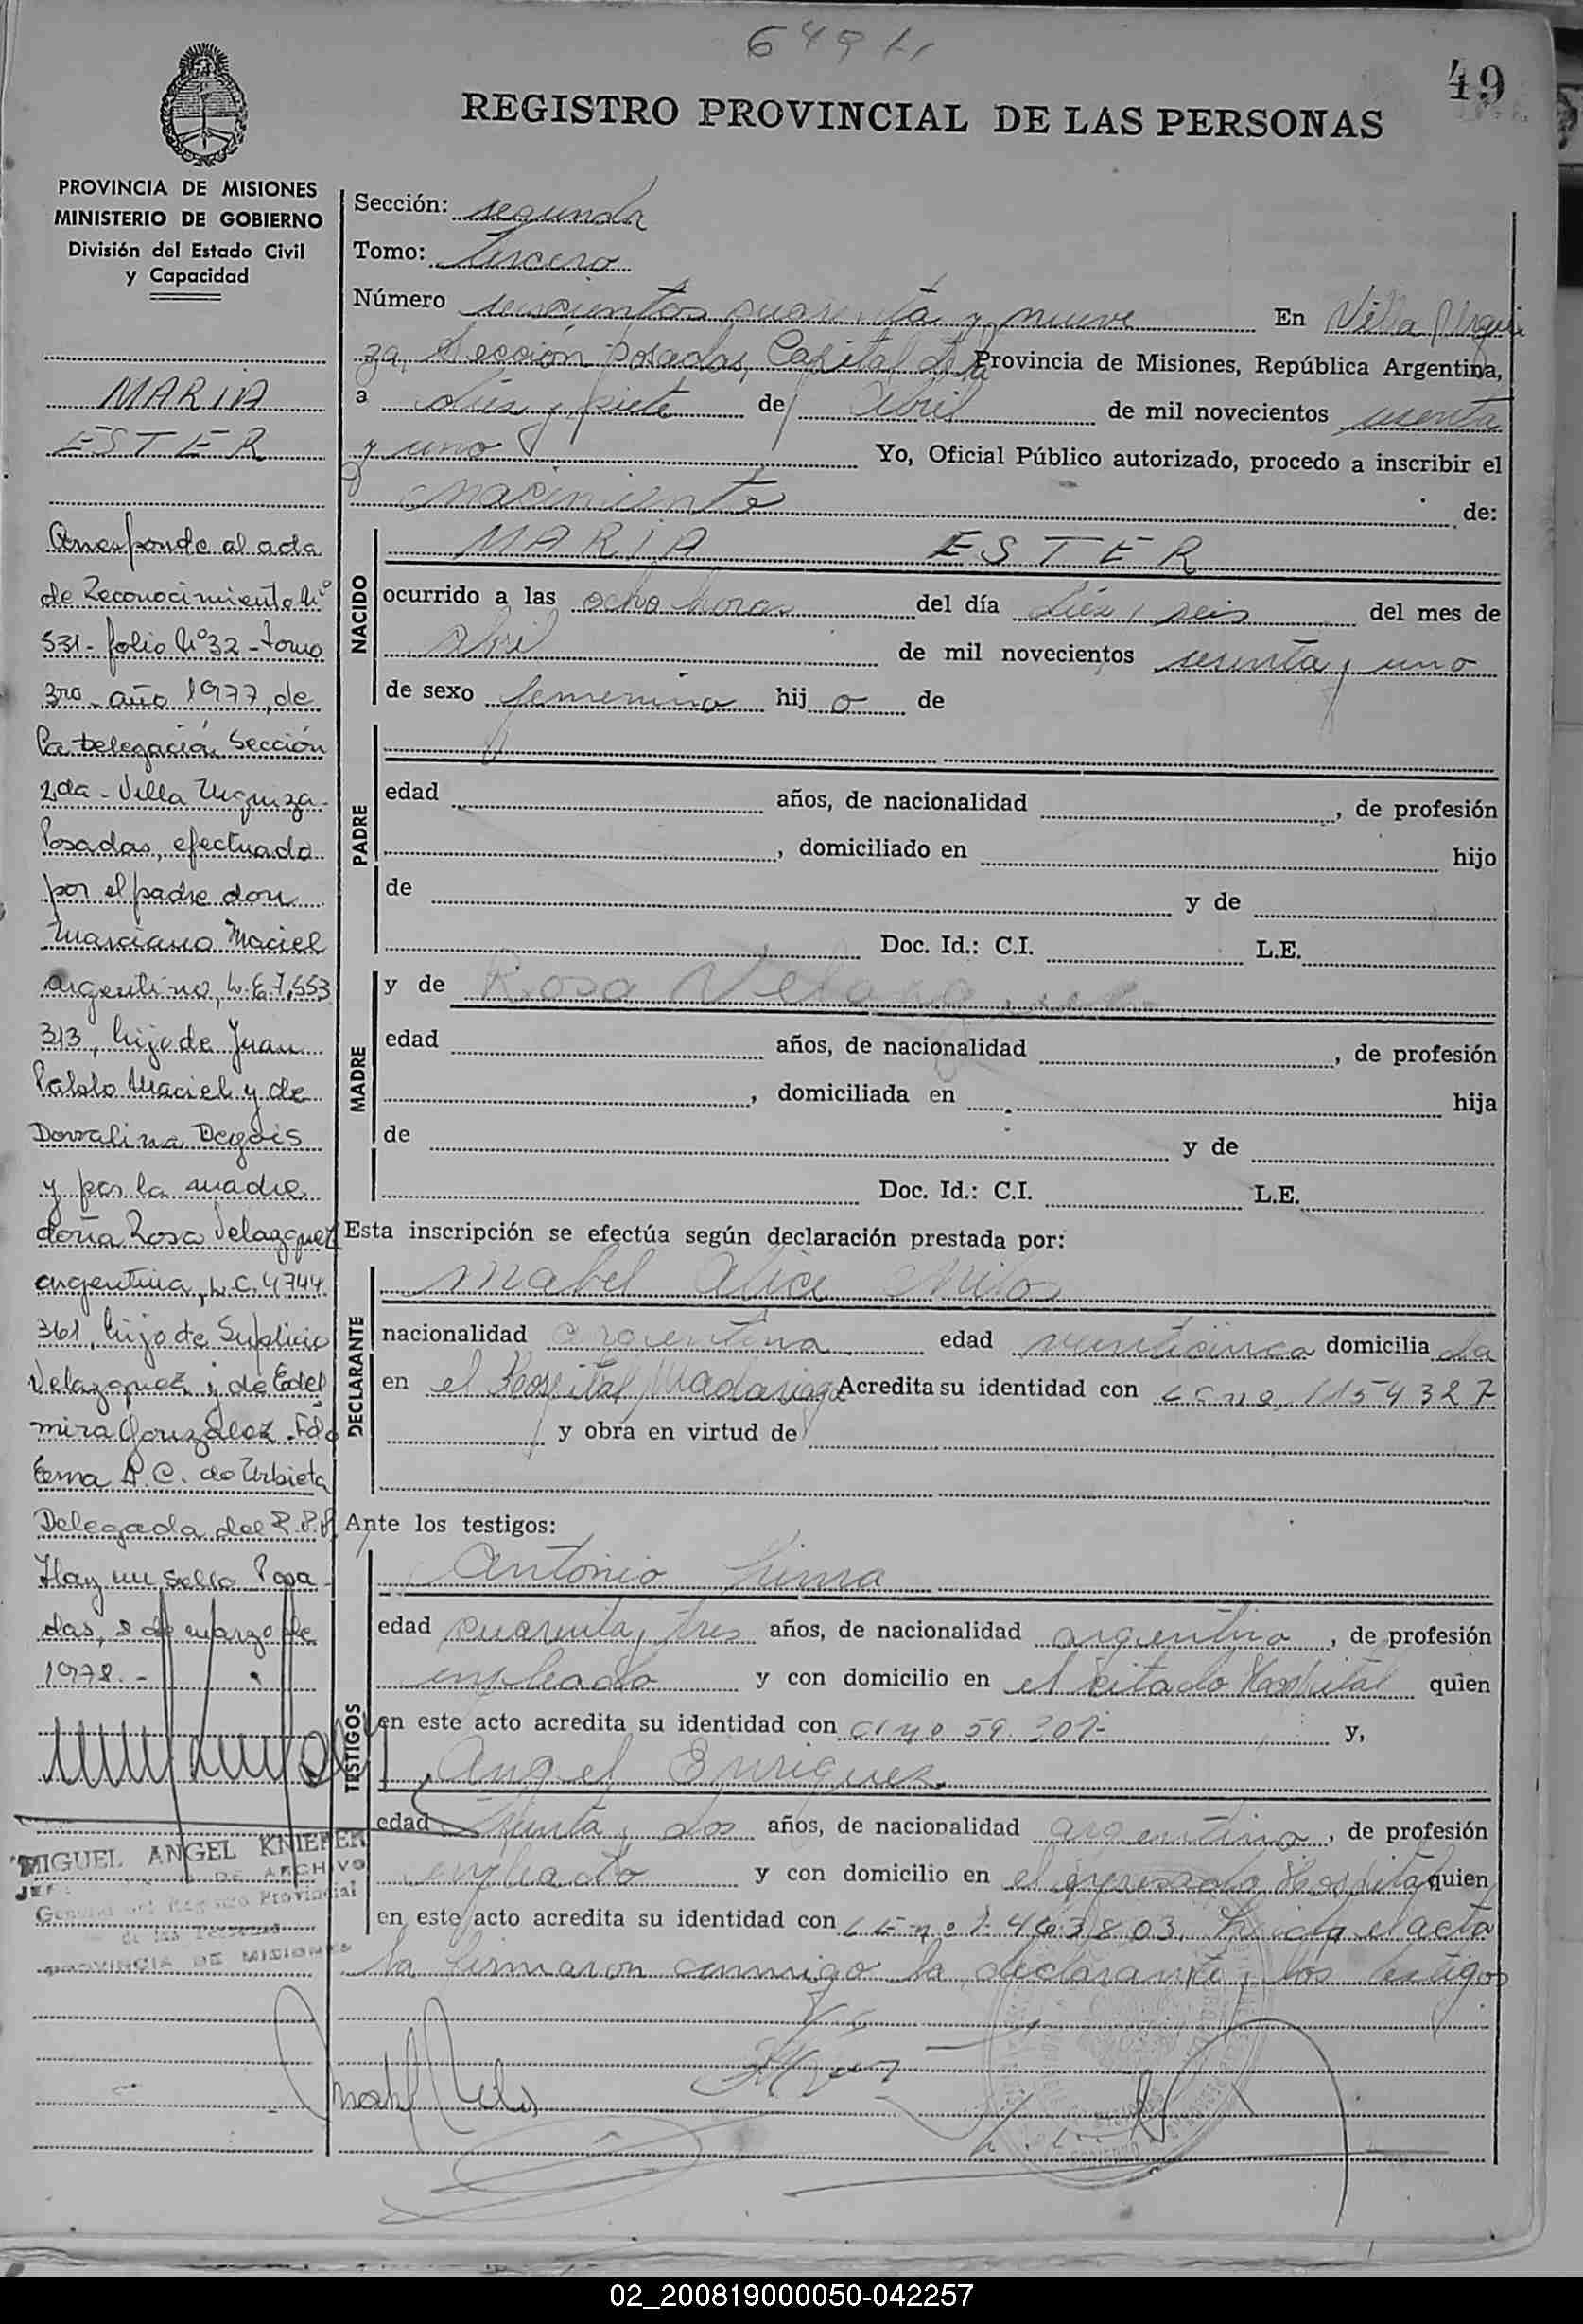 649
49
REGISTRO PROVINCIAL DE LAS PERSONAS
PROVINCIA DE MISIONES
MINISTERIO DE GOBIERNO
División del Estado Civil
y Capacidad
MARIA
ESTER
Corresponde al acta
de Reconocimiento Nº
531- folio Nº 32 - tomo
3ro - año 1977, de
la Delegación Sección
2da - Villa Urquiza -
Posadas, efectuado
por el padre don
Marciano Maciel
argentino, L.E. 7.553
313, hijo de Juan
Pablo Maciel y de
Dorralina Degois
y por la madre
doña Rosa Velazquez
argentina, L.C. 4744
361, hijo de Suplicio
Velazquez y de Edel
mira González. Fdo
Ema A.C. de Urbieta
Delegada del R.P.P.
Hay un sello Posa
das, 8 de marzo de
1978.-
MIGUEL ANGEL KNIEFER
DE ARCHIVO
General del Registro Provincial
de las Personas
PROVINCIA DE MISIONES
Sección: segunda
Tomo: tercero
Número seiscientos cuarenta y nueve En Villa Urqui
za, Sección Posadas, Capital de la Provincia de Misiones, República Argentina,
a diez y siete de Abril de mil novecientos sesenta
y uno Yo, Oficial Público autorizado, procedo a inscribir el
nacimiento de:
NACIDO
MARIA ESTER
ocurrido a las ocho horas del día diez y seis del mes de
Abril de mil novecientos sesenta y uno
de sexo femenino hij o de
PADRE
edad años, de nacionalidad , de profesión
, domiciliado en hijo
de y de
Doc. Id.: C.I. L.E.
MADRE
y de Rosa Velazquez
edad años, de nacionalidad , de profesión
, domiciliada en hija
de y de
Doc. Id.: C.I. L.E.
Esta inscripción se efectúa según declaración prestada por:
DECLARANTE
Mabel Alice Milos
nacionalidad argentina edad veinticinco domicilia da
en el Hospital Madariaga Acredita su identidad con 1154327
y obra en virtud de
Ante los testigos:
TESTIGOS
Antonio Lima
edad cuarenta y tres años, de nacionalidad argentino, de profesión
empleado y con domicilio en el citado Hospital quien
en este acto acredita su identidad con CI nº 59.201- y,
Angel Enriquez
edad treinta y dos años, de nacionalidad argentino, de profesión
empleado y con domicilio en el expresado Hospital quien
en este acto acredita su identidad con LE nº 7.463.803. Leida el acta
la firmaron conmigo la declarante y los testigos
02_200819000050-042257